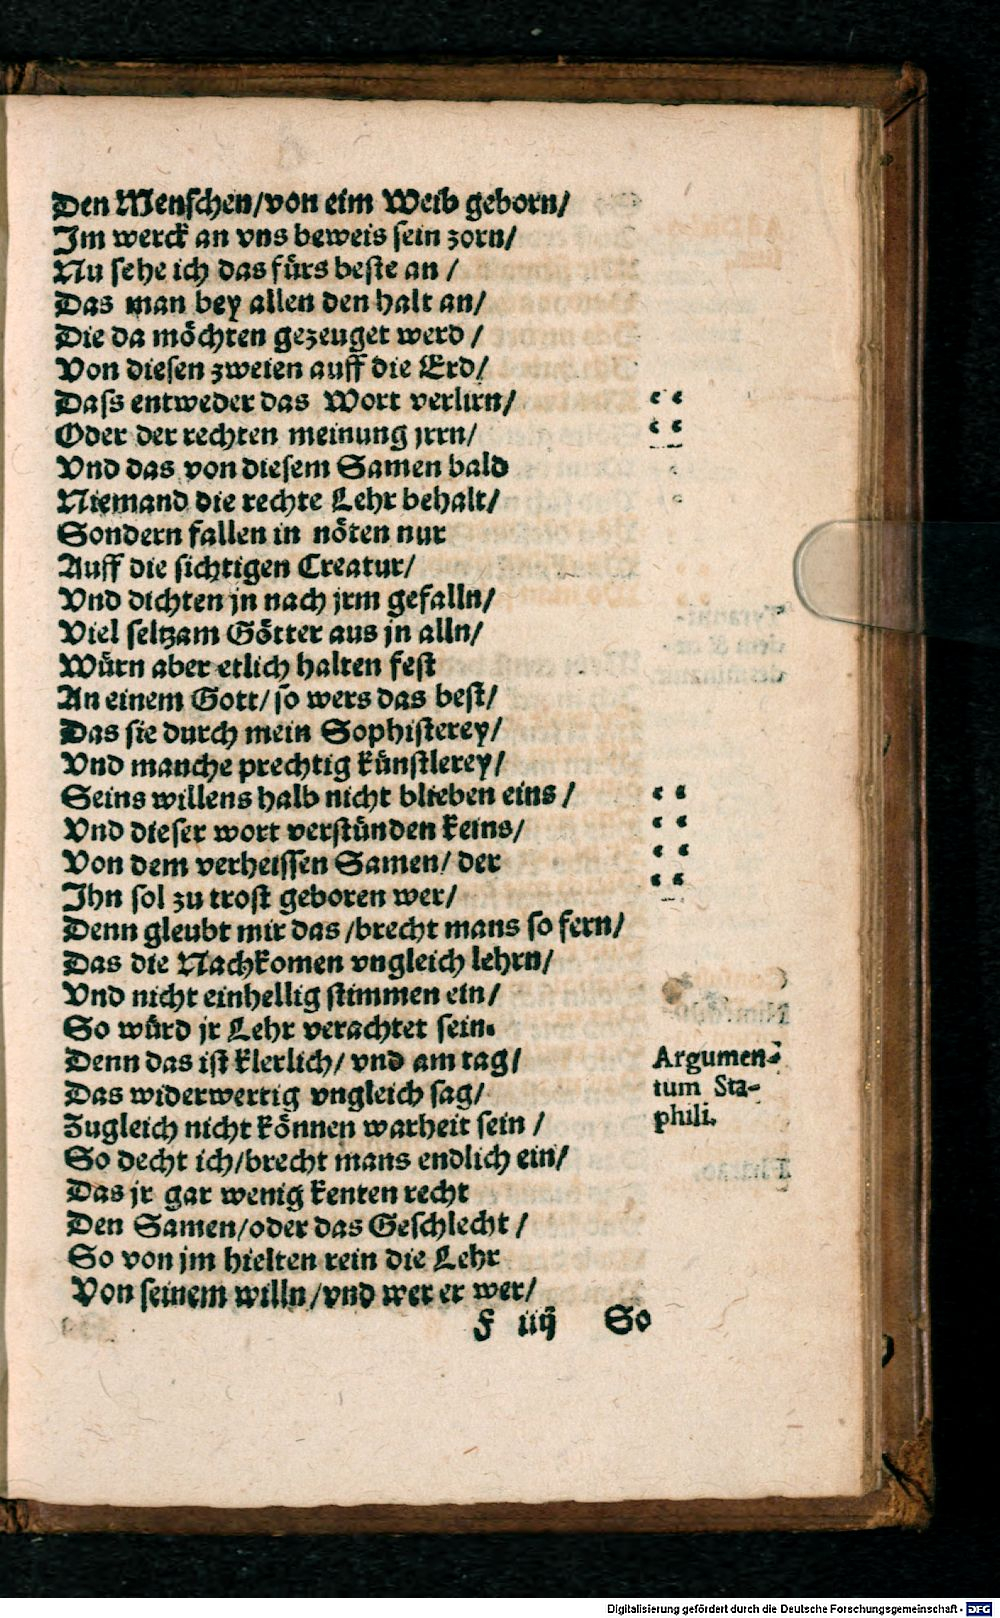 Den Menschen/von eim Weib geborn/
Im werck an vns beweis sein zorn/
Nu sehe ich das fürs beste an /
Das man bey allen den halt an/
Die da möchten gezeuget werd /
Von diesen zweien auff die Erd/
Dass entweder das Wort verlirn/
Oder der rechten meinung jrrn/
Vnd das von diesem Samen bald
Niemand die rechte Lehr behalt/
Sondern fallen in nöten nur
Auff die sichtigen Creatur/
Vnd dichten jn nach jrm gefalln/
Viel seltzam Götter aus jn alln/
Würn aber etlich halten fest
An einem Gott/ so wers das best/
Das sie durch mein Sophisterey/
Vnd manche prechtig künstlerey/
Seins willens halb nicht blieben eins /
Vnd dieser wort verstünden keins/
Von dem verheissen Samen/ der
Ihn sol zu trost geboren wer/
Denn gleubt mir das /brecht mans so fern/
Das die Nachkomen vngleich lehrn/
Vnd nicht einhellig stimmen ein/
So würd jr Lehr verachtet sein.
Denn das ist klerlich/ vnd am tag/
Das widerwertig vngleich sag/
Zugleich nicht können warheit sein /
So decht ich/brecht mans endlich ein/
Das jr gar wenig kenten recht
Den Samen/oder das Geschlecht /
So von jm hielten rein die Lehr
Von seinem willn /vnd wer er wer/
F iiij So
Argumen-
tum Sta-
phili.
Digitalisierung gefördert durch die Deutsche Forschungsgemeinschaft - DFG